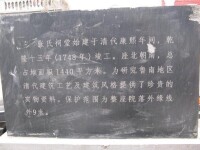 氏祠堂始建于清代康熙年间，乾
隆十三年（1748年）竣工。座北朝南，总
占地面积1440平方米。为研究鲁南地区
清代建筑工艺及建筑风格提供了珍贵的
实物资料。保护范围为整座院落外缘往
外9米。